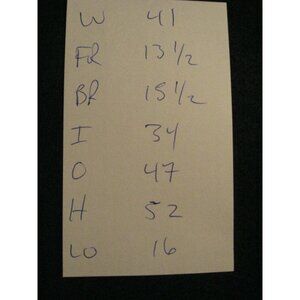 W 41
FR 13 1/2
BR 15 1/2
I 34
O 47
H 52
LO 16